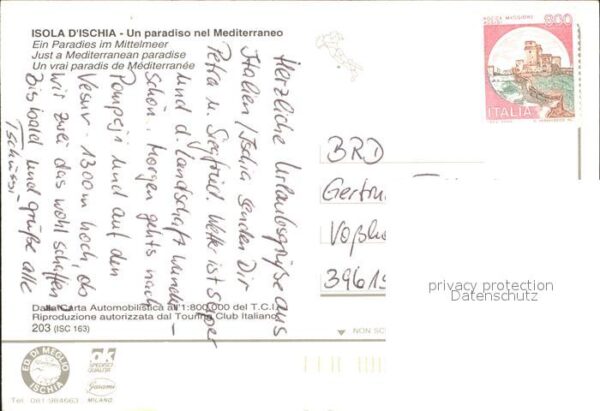 ISOLA D'ISCHIA - Un paradiso nel Mediterraneo
Ein Paradies im Mittelmeer
Just a Mediterranean paradise
Un vrai paradis de Méditerranée
Herzliche Urlaubsgrüße aus
Italien/Ischia senden Dir
Petra u. Siegfried. Wetter ist super
und d. Landschaft wunder-
schön. Morgen gehts nach
Pompeji und auf den
Vesuv - 1300m hoch, ob
wir zwei das wohl schaffen
Bis bald und grüße alle
Tschüssi
800
ITALIA
BRD
Gertru
Voßho
39619
privacy protection
Datenschutz
Dalla Carta Automobilistica all'1:800.000 del T.C.I.
Riproduzione autorizzata dal Touring Club Italiano
203 (ISC 163)
NON SC
ED. DI MEGLIO
ISCHIA
ak
Garami
MILANO
Tel. 081 984663